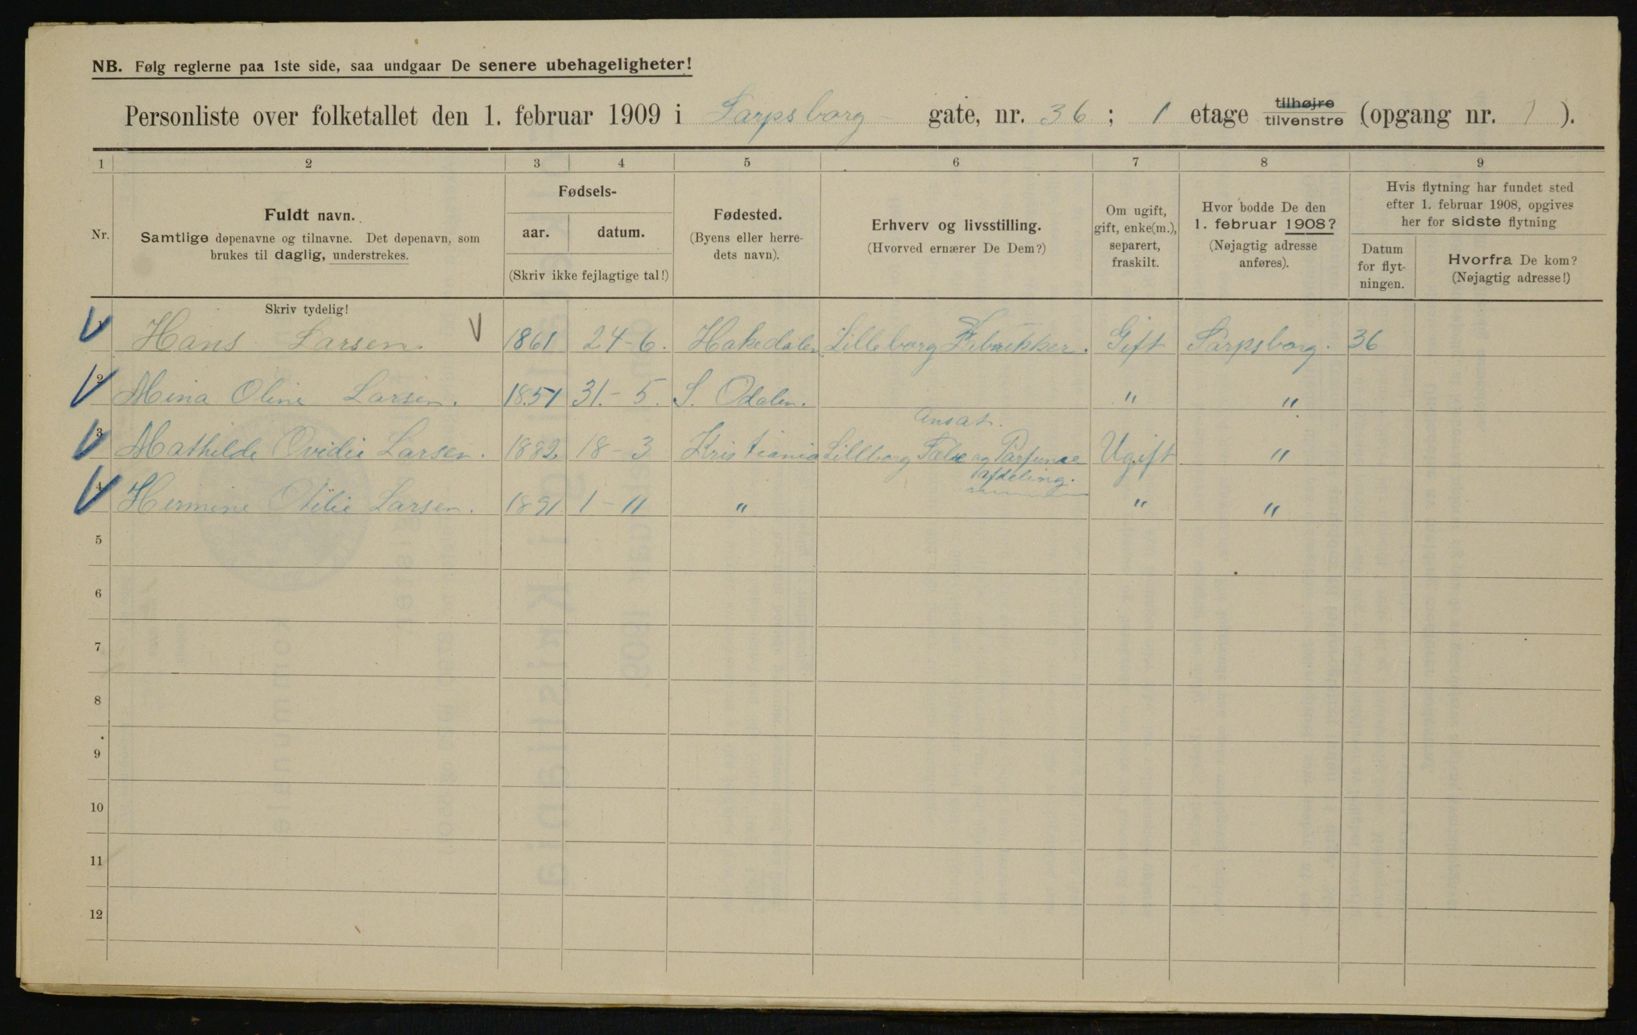 NB. Følg reglerne paa 1ste side, saa undgaar De senere ubehageligheter!
Personliste over folketallet den 1. februar 1909 i Sarpsborg gate, nr. 36 ; 1 etage tilhøjre tilvenstre (opgang nr. 1 ).
1 2 3 4 5 6 7 8 9
Nr.
Fuldt navn.
Samtlige døpenavne og tilnavne. Det døpenavn, som
brukes til daglig, understrekes.
Skriv tydelig!
Fødsels-
aar. datum.
(Skriv ikke fejlagtige tal!)
Fødested.
(Byens eller herre-
dets navn).
Erhverv og livsstilling.
(Hvorved ernærer De Dem?)
Om ugift,
gift, enke(m.),
separert,
fraskilt.
Hvor bodde De den
1. februar 1908?
(Nøjagtig adresse
anføres).
Hvis flytning har fundet sted
efter 1. februar 1908, opgives
her for sidste flytning
Datum
for flyt-
ningen.
Hvorfra De kom?
(Nøjagtig adresse!)
1 Hans Larsen. 1861 24-6. Hakedalen Lilleborg Gift Sarpsborg. 36
2 Mina Oline Larsen. 1851 31.-5. S. Odalen. " "
Ansat.
3 Mathilde Ovidie Larsen. 1882 18-3 Kristiania Lillborg og Parfume Ugift "
Afdeling.
4 Hermine Larsen. 1891 1-11 " " "
5
6
7
8
9
10
11
12